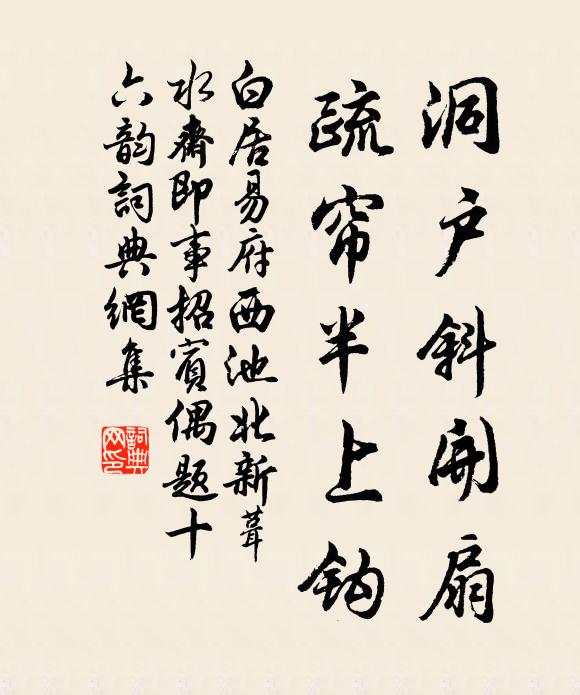 洞户斜開扇
疏帘半上鈎
白居易府西池北新葺
水齋即事招賓偶題十
六韵詞典網集
詞典
网印